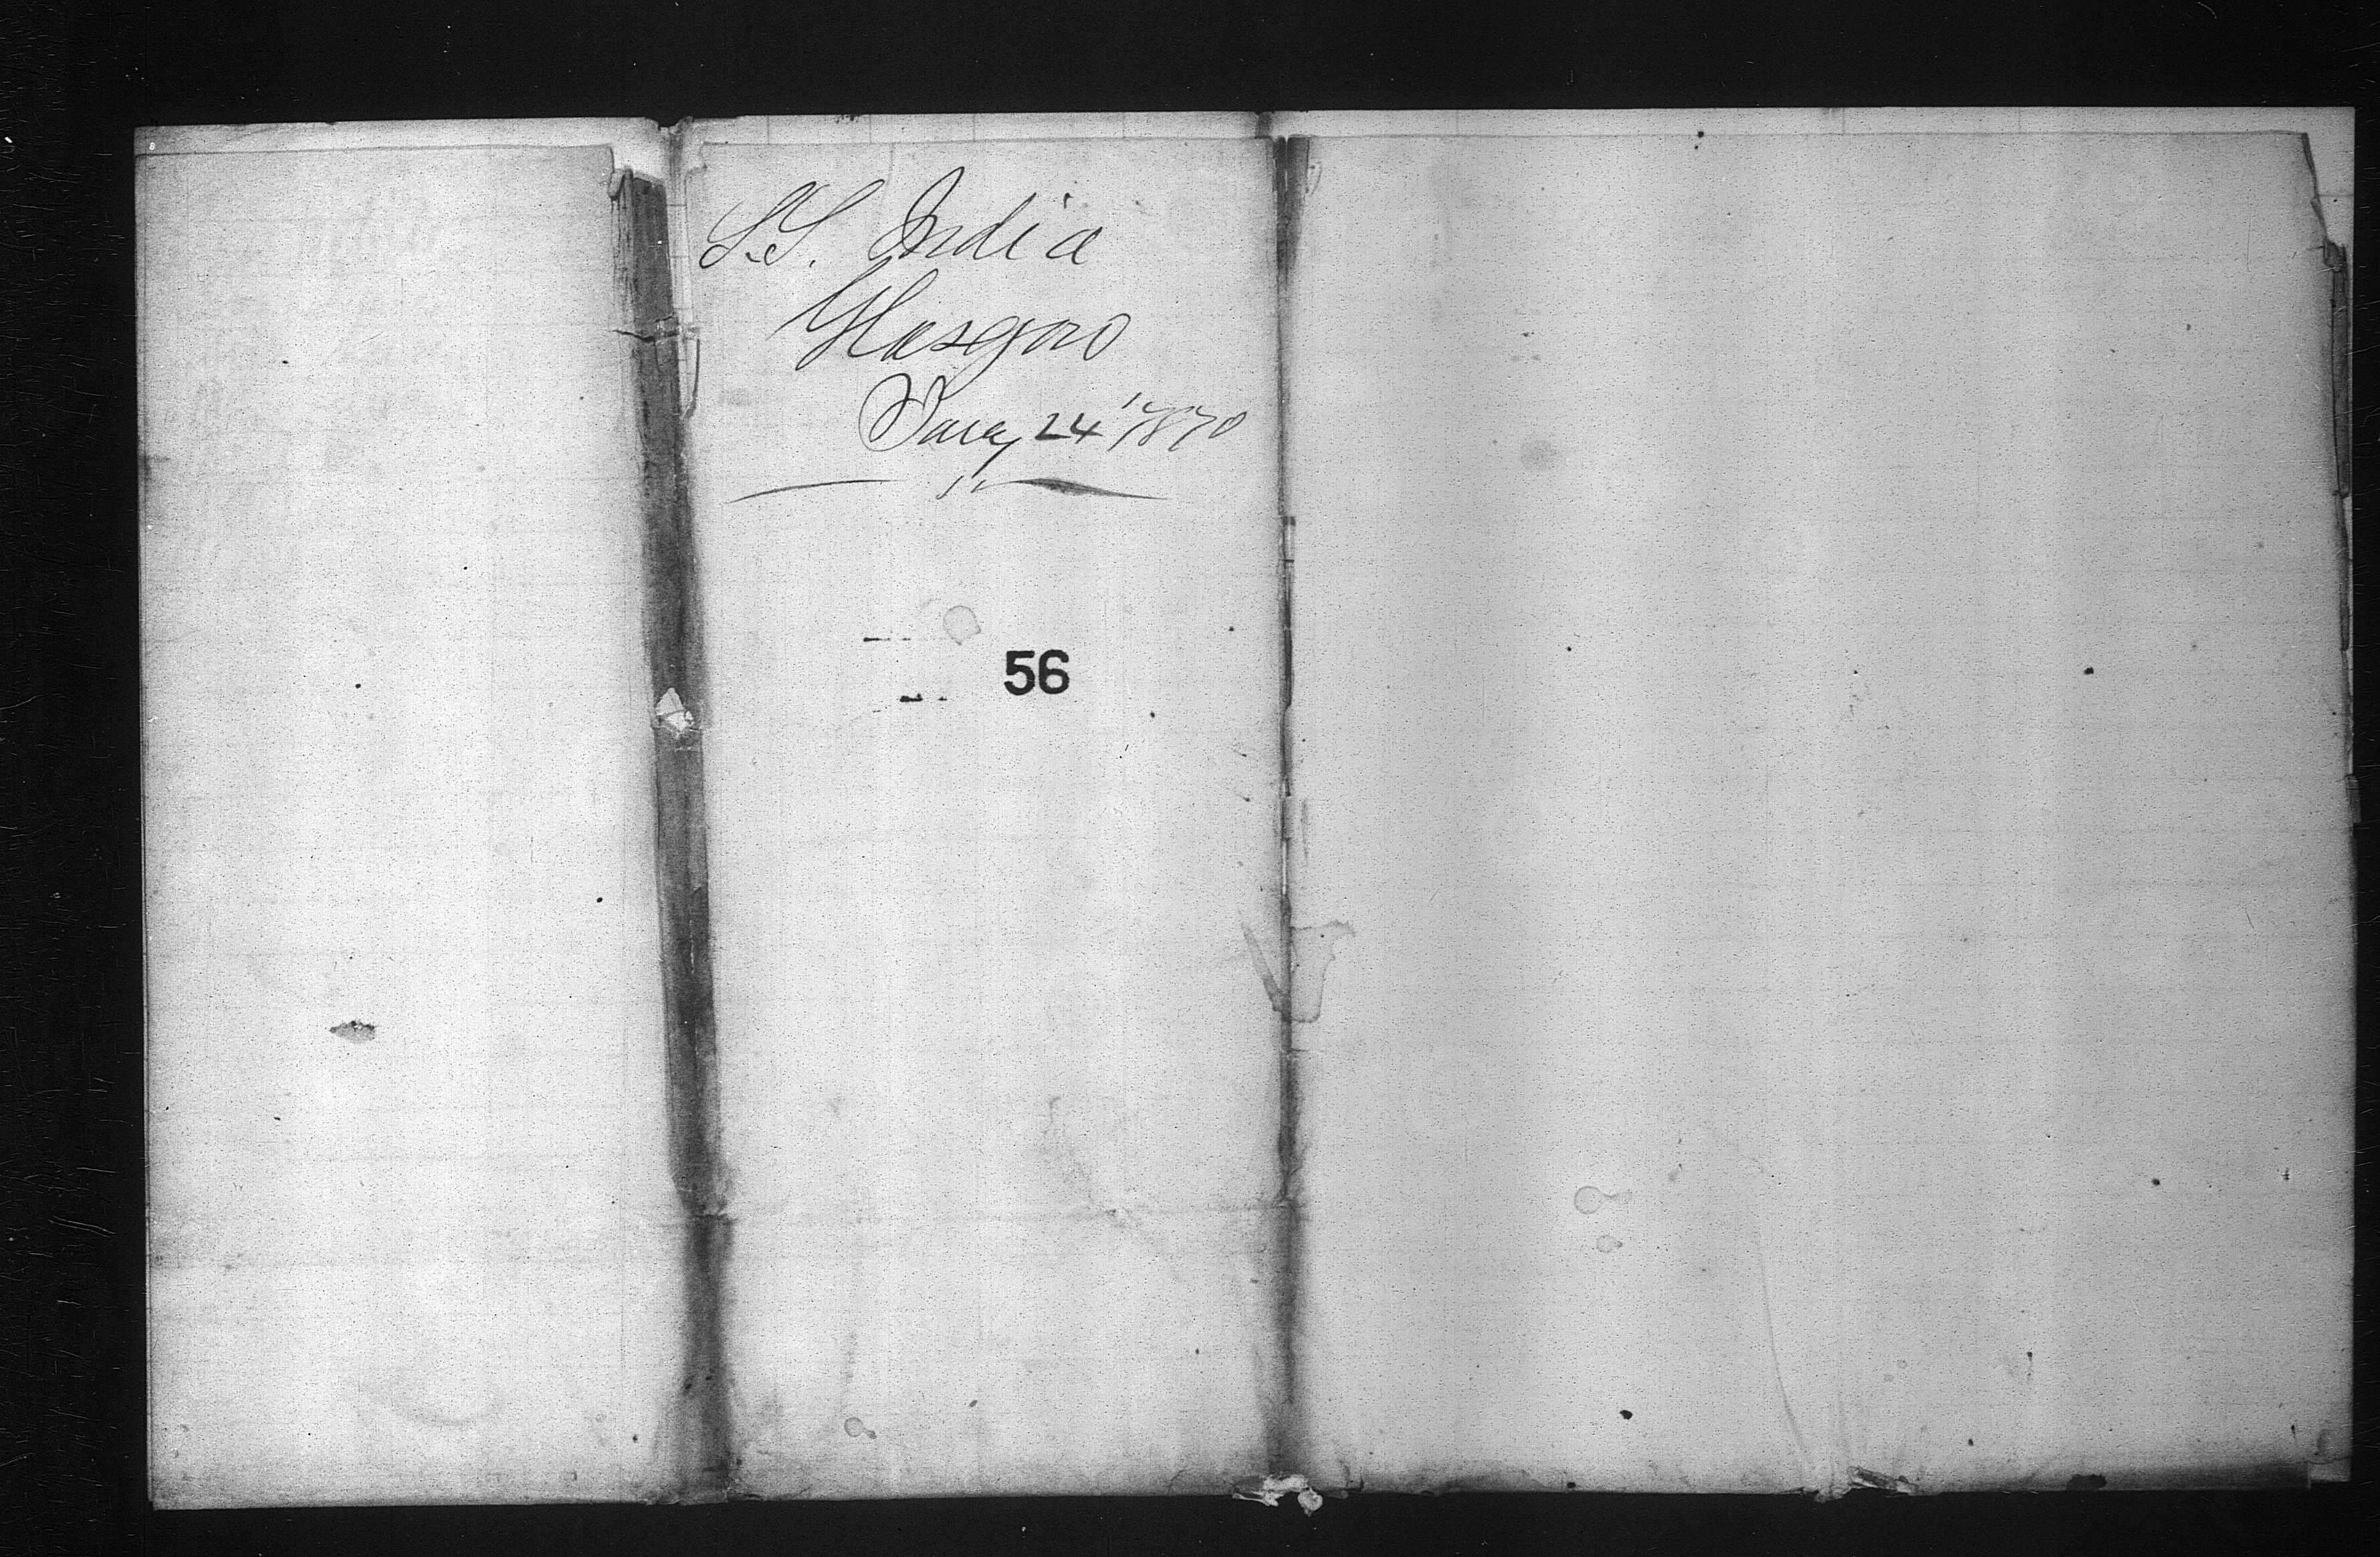 S.S. India
Glasgow
Jany 24 1870
56